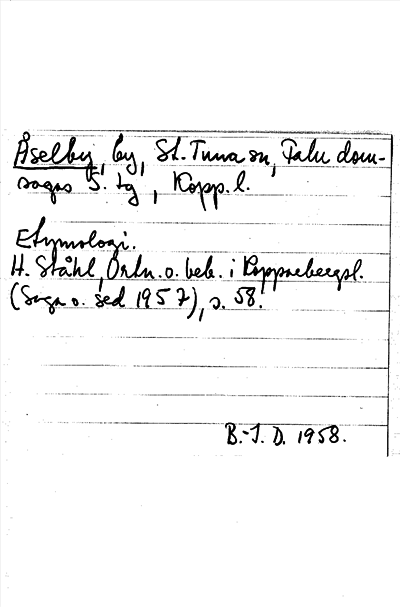 Åselby, by, St. Tuna sn, Falu dom-
sagas S. tg, Kopp. l.
Etymologi.
H. Ståhl, Ortn. o. beb. i Kopparbergsl.
(Saga o. sed 1957), s. 58.
B.-I. D. 1958.